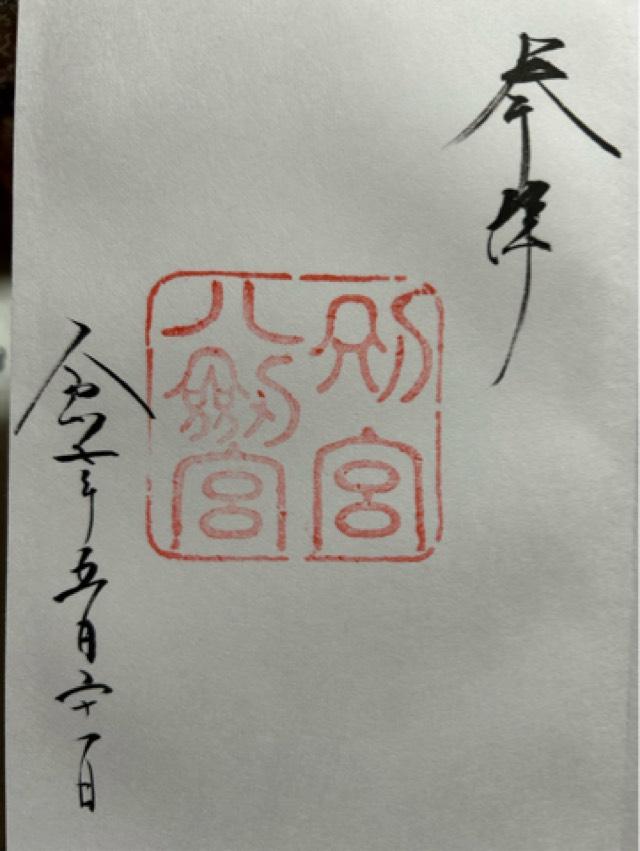 奉拝
別宮
八剣宮
令和七年五月二十一日